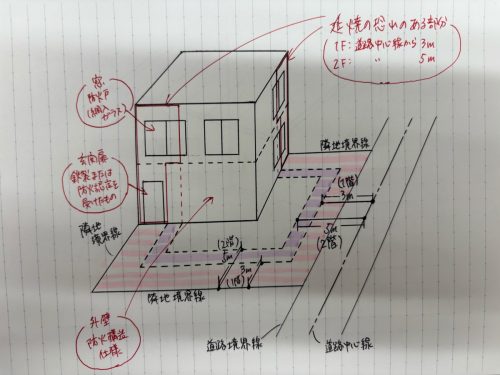 延焼の恐れのある部分
1F:道路中心線から 3m
2F: 〃 5m
窓
防火戸
(網入
ガラス)
玄関扉
鉄製または
防火認定を
受けたもの
隣地
境界線
外壁
防火構造
仕様
隣地境界線
(1階)
3m
5m
(2階)
(2階)
5m
3m
(1階)
隣地境界線
道路境界線
道路中心線